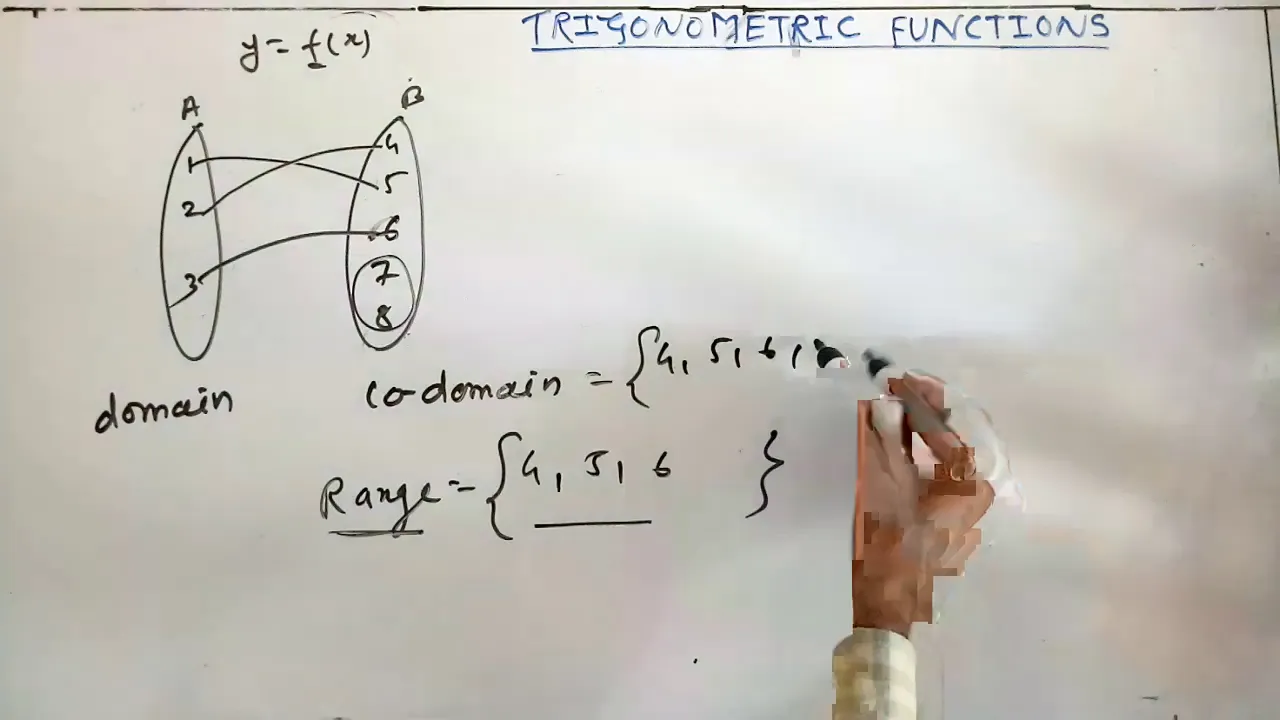 TRIGONOMETRIC FUNCTIONS
y = f(x)
A B
1 4
2 5
3 6
7
8
domain
co-domain = {4, 5, 6,
Range = {4, 5, 6 }